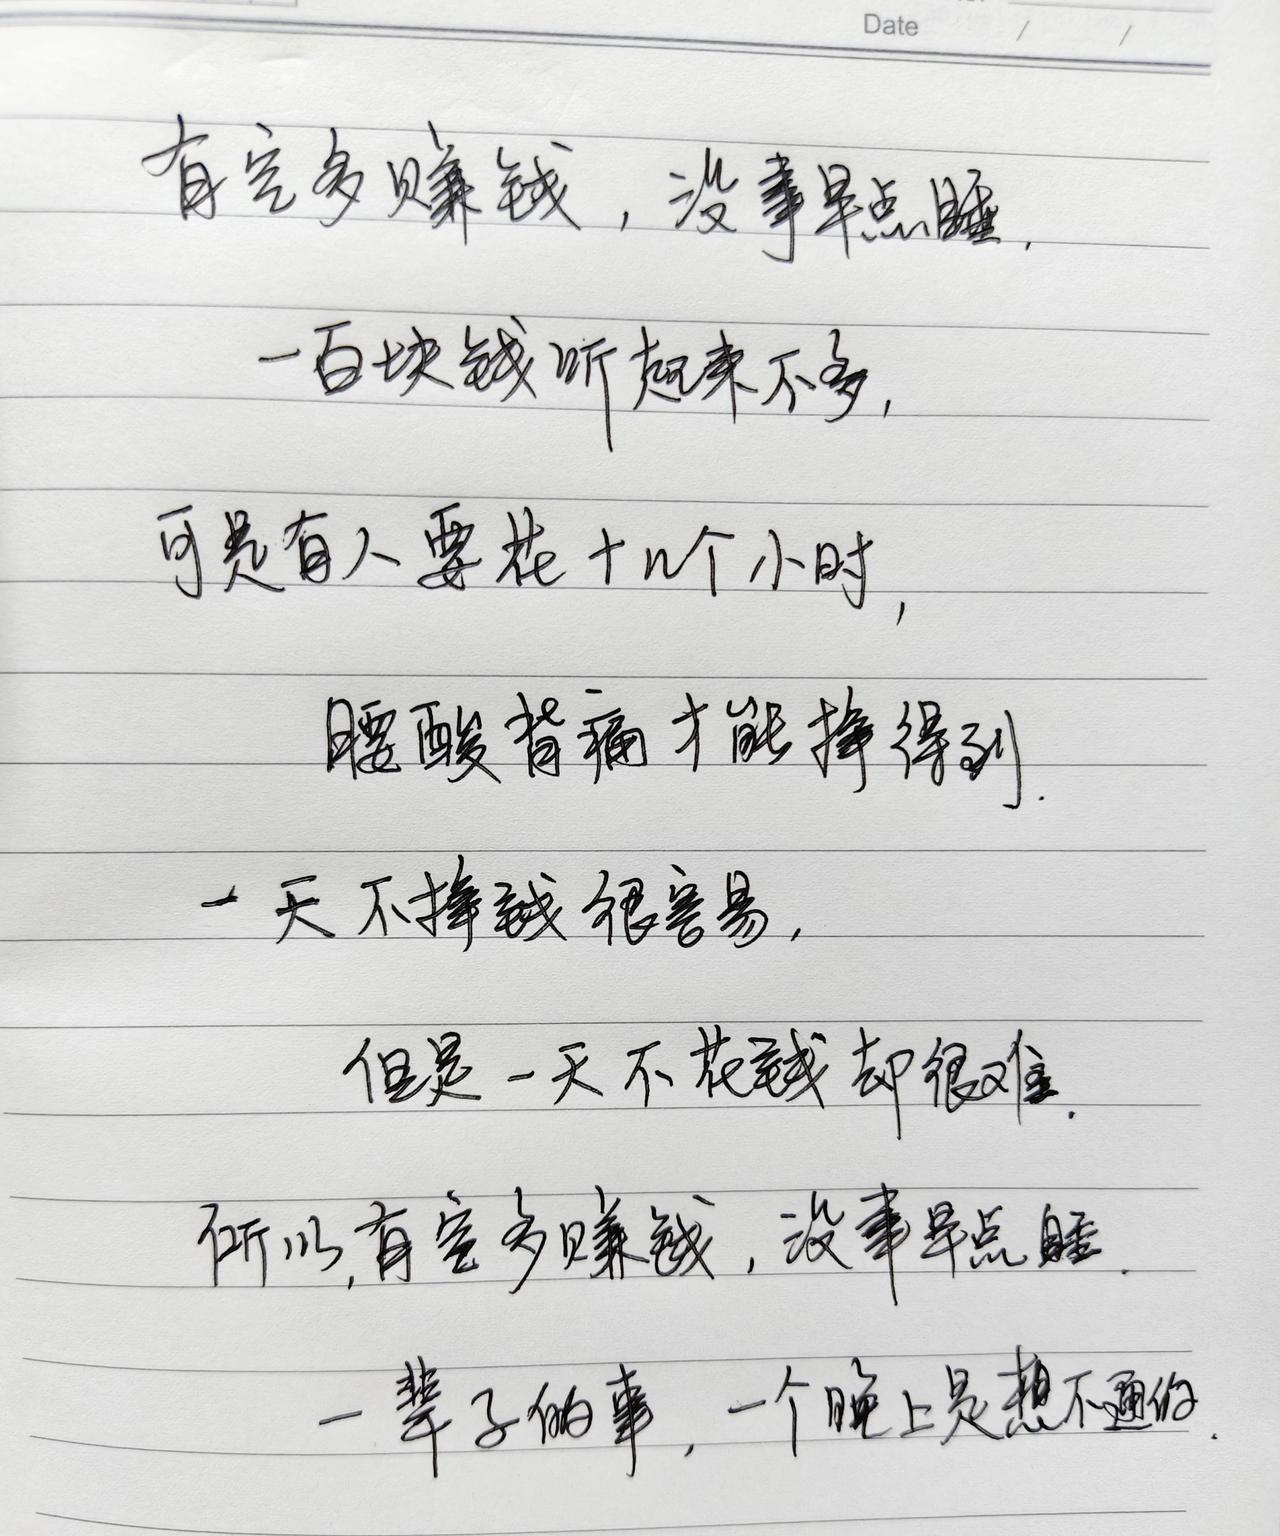 Date / /
有空多赚钱，没事早点睡.
一百块钱听起来不多,
可是有人要花十几个小时,
腰酸背痛才能挣得到.
一天不挣钱很容易,
但是一天不花钱却很难.
所以,有空多赚钱,没事早点睡.
一辈子的事,一个晚上是想不通的.